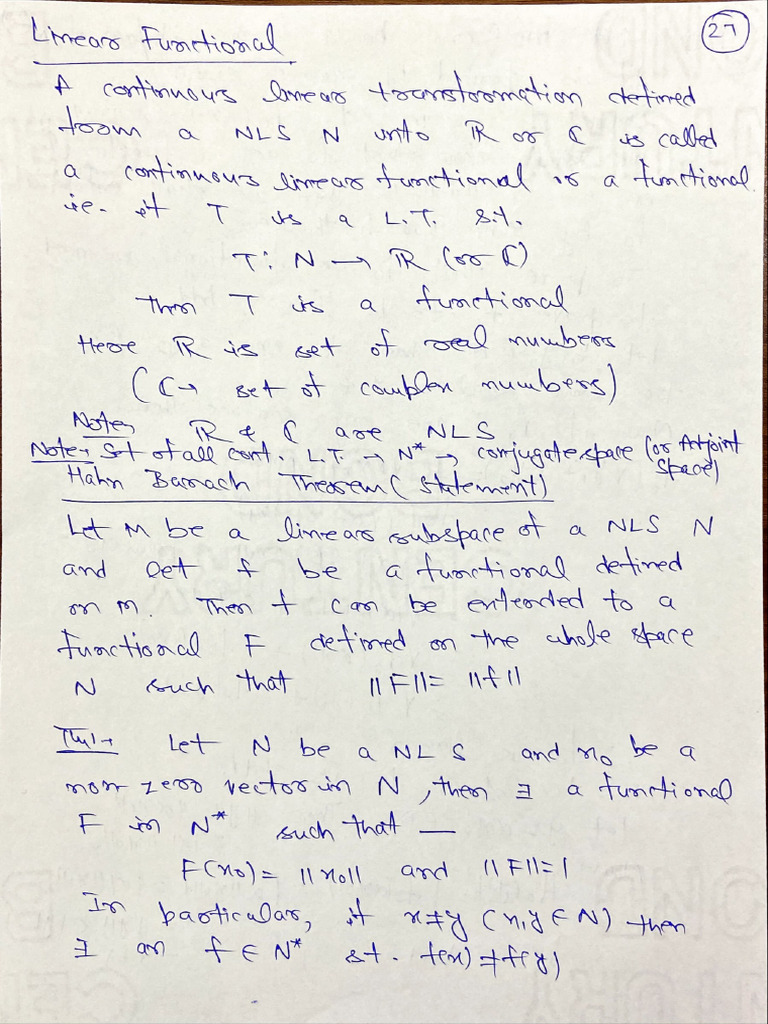 27
Linear Functional
A continuous linear transformation defined
from a NLS N into ℝ or ℂ is called
a continuous linear functional or a functional.
ie. if T is a L.T. s.t.
T: N → ℝ (or ℂ)
then T is a functional
Here ℝ is set of real numbers
(ℂ → set of complex numbers)
Note→ ℝ & ℂ are NLS
Note→ Set of all cont. L.T. → N* → conjugate space (or Adjoint
space)
Hahn Banach Theorem (Statement)
Let M be a linear subspace of a NLS N
and let f be a functional defined
on M. Then f can be extended to a
functional F defined on the whole space
N such that ||F|| = ||f||
Th1→ Let N be a NLS and x₀ be a
non zero vector in N, then ∃ a functional
F in N* such that —
F(x₀) = ||x₀|| and ||F|| = 1
In particular, if x≠y (x,y ∈ N) then
∃ an f ∈ N* s.t. f(x) ≠ f(y)